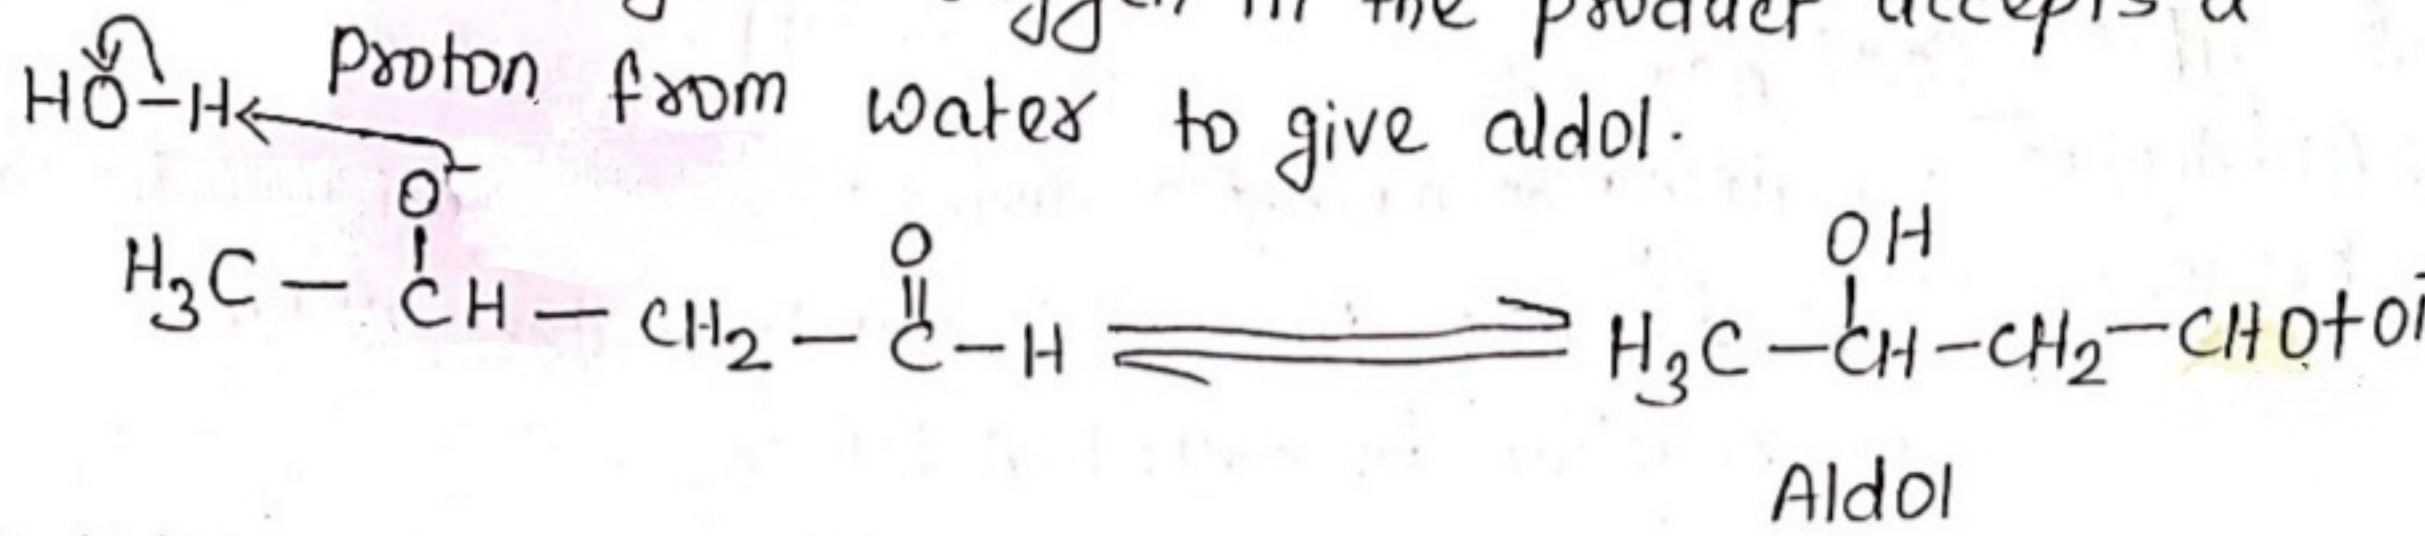 in the product accepts a
HO–H proton from water to give aldol.
O⁻
H₃C – CH – CH₂ – C – H ⇌ H₃C – CH – CH₂ – CHO +
O
OH
Aldol